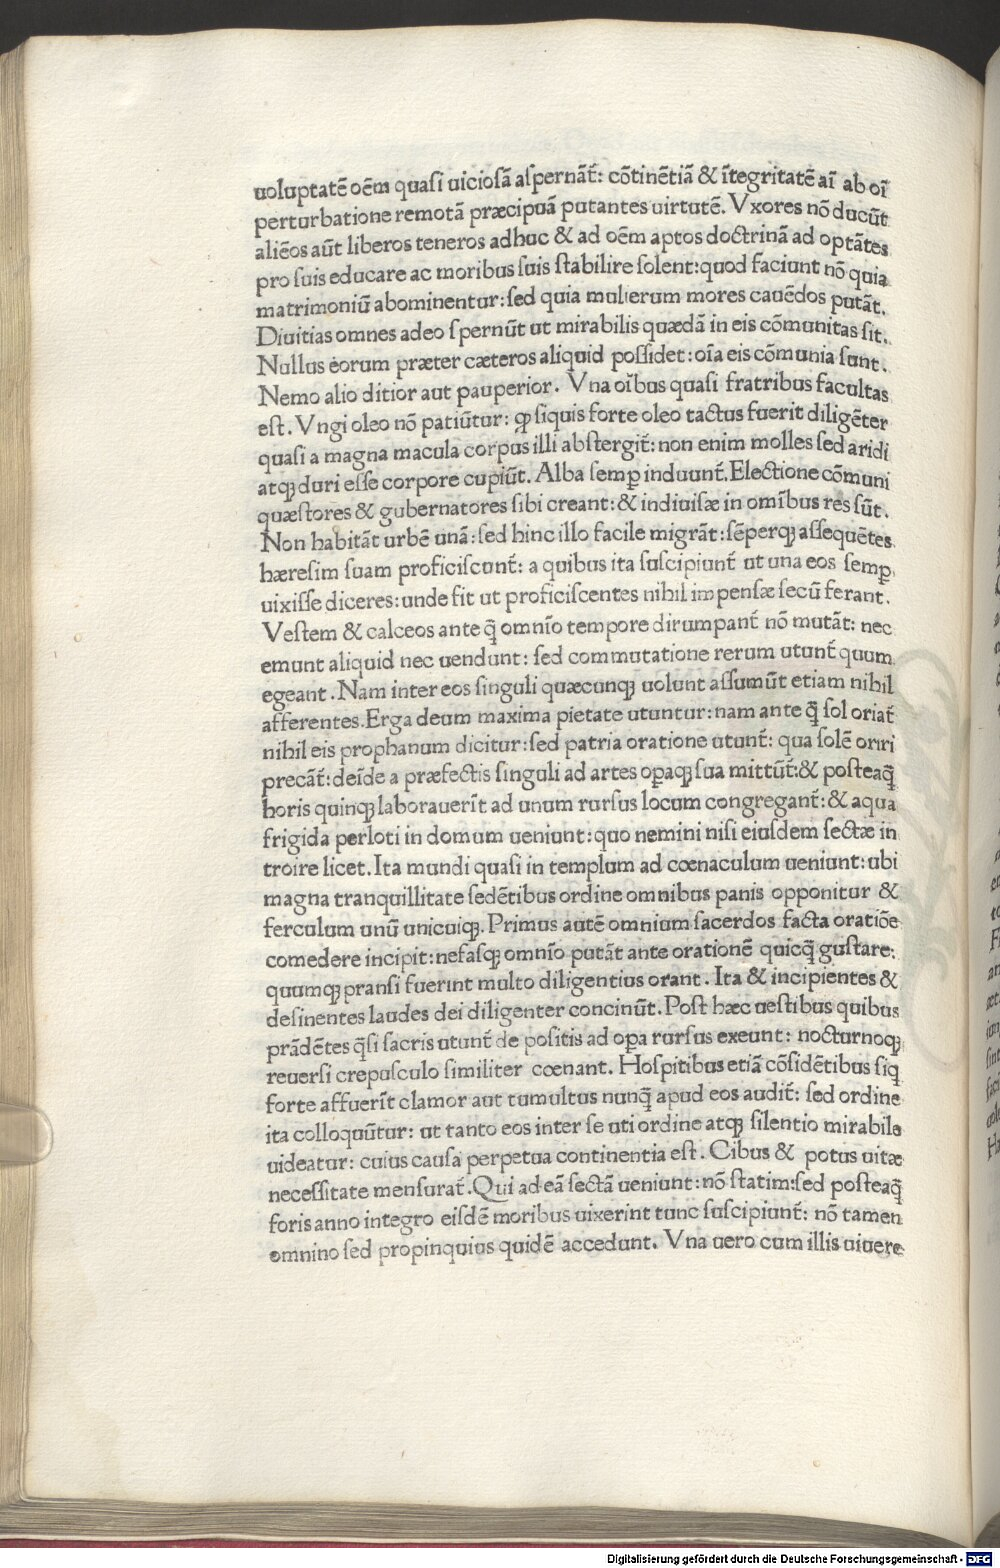 uoluptatē oēm quasi uiciosā aspernāt̄: cōtinētiā & ītegritatē aī ab oī
perturbatione remotā præcipuā putantes uirtutē. Vxores nō ducūt
aliēos aūt liberos teneros adhuc & ad oēm aptos doctrinā ad optātes
pro suis educare ac moribus suis stabilire solent: quod faciunt nō quia
matrimoniū abominentur: sed quia mulierum mores cauēdos putāt.
Diuitias omnes adeo spernūt ut mirabilis quædā in eis cōmunitas sit.
Nullus eorum præter cæteros aliquid possidet: oīa eis cōmunia sunt.
Nemo alio ditior aut pauperior. Vna oībus quasi fratribus facultas
est. Vngi oleo nō patiūtur: ꝙ siquis forte oleo tactus fuerit diligēter
quasi a magna macula corpus illi abstergit̄: non enim molles sed aridi
atqꝫ duri esse corpore cupiūt. Alba semꝑ induunt̄. Electione cōmuni
quæstores & gubernatores sibi creant: & indiuisæ in omībus res sūt.
Non habitāt urbē unā: sed hinc illo facile migrāt: sēperqꝫ assequētes
hæresim suam proficiscunt̄: a quibus ita suscipiunt̄ ut una eos semꝑ
uixisse diceres: unde fit ut proficiscentes nihil impensæ secū ferant.
Vestem & calceos ante q̄ omnīo tempore dirumpant̄ nō mutāt: nec
emunt aliquid nec uendunt: sed commutatione rerum utunt̄ quum
egeant. Nam inter eos singuli quæcunqꝫ uolunt assumūt etiam nihil
afferentes. Erga deum maxima pietate utuntur: nam ante q̄ sol oriat̄
nihil eis prophanum dicitur: sed patria oratione utunt̄: qua solē oriri
precāt̄: deīde a præfectis singuli ad artes oꝑaqꝫ sua mittūt̄: & posteaq̄
horis quinqꝫ laborauerīt ad unum rursus locum congregant̄: & aqua
frigida perloti in domum ueniunt: quo nemini nisi eiusdem sectæ in
troire licet. Ita mundi quasi in templum ad cœnaculum ueniunt: ubi
magna tranquillitate sedētibus ordine omnibus panis opponitur &
ferculum unū unicuiqꝫ. Primus autē omnium sacerdos facta oratiōe
comedere incipit: nefasqꝫ omnīo putāt ante orationē quicq̄ gustare:
quumqꝫ pransi fuerint multo diligentius orant. Ita & incipientes &
desinentes laudes dei diligenter concinūt. Post hæc uestibus quibus
prādētes q̄si sacris utunt̄ de positis ad oꝑa rursus exeunt: nocturnoqꝫ
reuersi crepusculo similiter cœnant. Hospitibus etiā cōsidētibus siq̄
forte affuerīt clamor aut tumultus nunq̄ apud eos audit̄: sed ordine
ita colloquūtur: ut tanto eos inter se uti ordine atqꝫ silentio mirabile
uideatur: cuius causa perpetua continentia est. Cibus & potus uitæ
necessitate mensurat̄. Qui ad eā sectā ueniunt: nō statim: sed posteaq̄
foris anno integro eisdē moribus uixerint tunc suscipiunt̄: nō tamen
omnino sed propinquius quidē accedunt. Vna uero cum illis uiuere
Digitalisierung gefördert durch die Deutsche Forschungsgemeinschaft - DFG